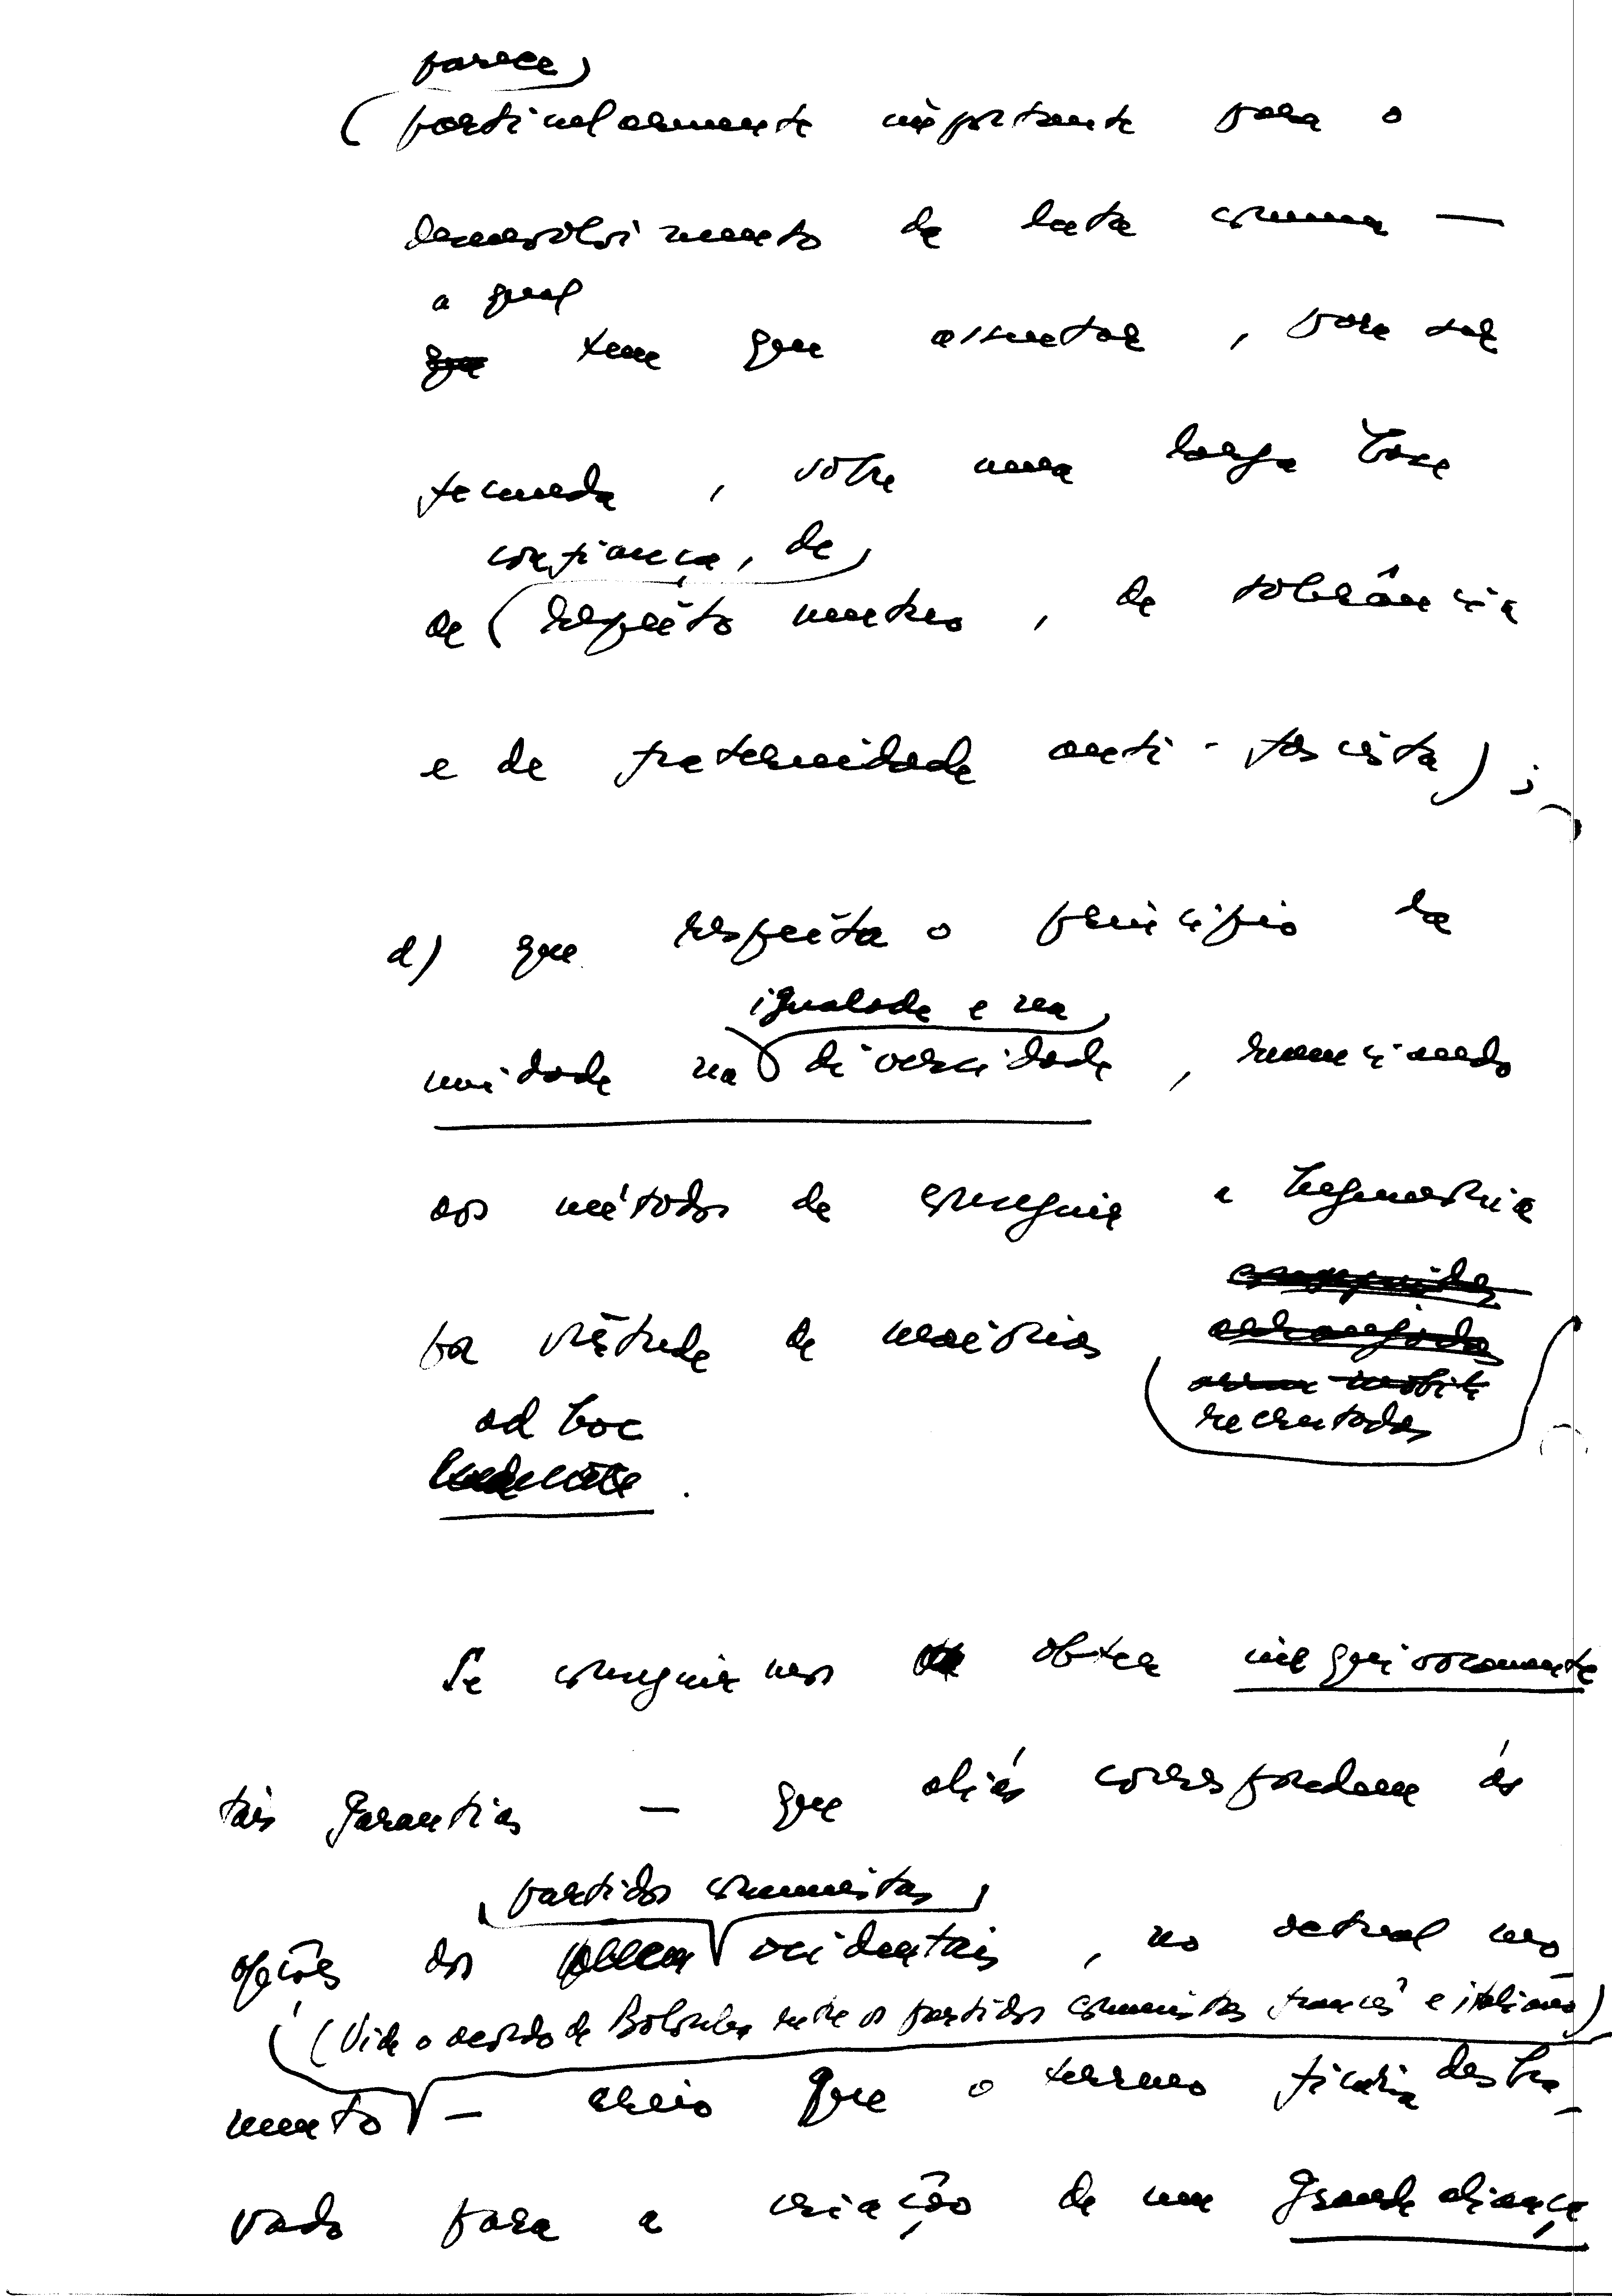 parece
(particularmente importante para o
desenvolvimento da luta comum —
a qual
que tem que assentar, para ser
fecunda, sôbre uma larga base
confiança, de
de (respeito mutuo, de tolerância
e de fraternidade anti-fascista);
d) que respeita o princípio da
igualdade e na
unidade na diversidade, renunciando
aos métodos de conseguir a hegemonia
conseguidas
por virtude de maiorias arranjadas
recrutadas
ad hoc
.
Se conseguirmos obter inequivocamente
tais garantias — que aliás correspondem às
partidos comunistas
opções dos ocidentais, no actual mo-
(Vide o acordo de entre os partidos comunistas francês e italiano)
mento — creio que o terreno ficaria desbra-
vado para a criação de uma grande aliança